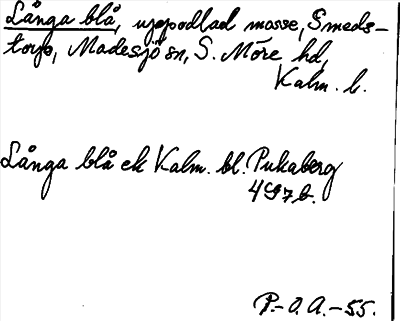 Långa blå, uppodlad mosse, Smeds-
torp, Madesjö sn, S. Möre hd,
Kalm. l.
Långa blå ek Kalm. bl. Pukaberg
497b.
P.-O.A.-55.